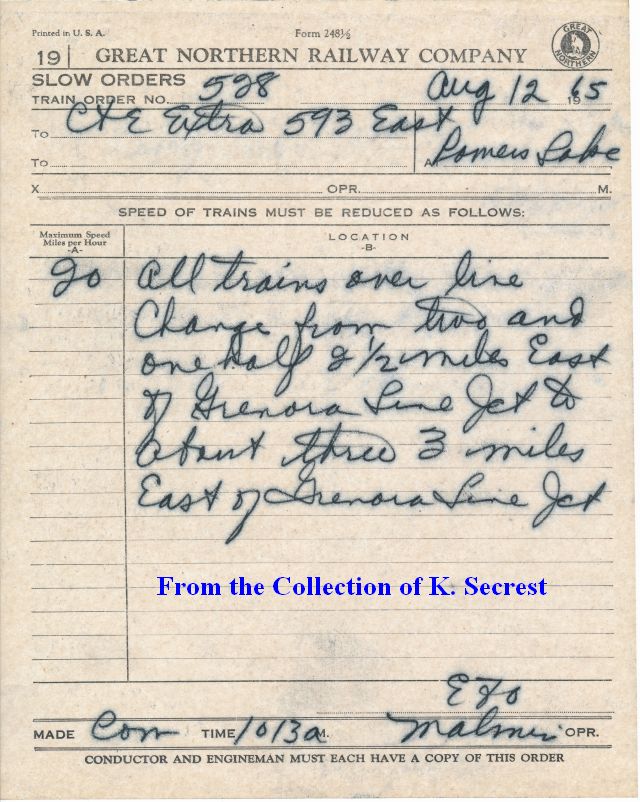 Printed in U. S. A. Form 248½
19 GREAT NORTHERN RAILWAY COMPANY
GREAT NORTHERN
SLOW ORDERS
TRAIN ORDER NO. 528 Aug 12 1965
To C&E Extra 593 East
To At Lomers Lake
X OPR. M.
SPEED OF TRAINS MUST BE REDUCED AS FOLLOWS:
Maximum Speed Miles per Hour -A- LOCATION -B-
20 All trains over line
Change from two and
one half 2 1/2 miles East
of Grenora Line Jct to
about three 3 miles
East of Grenora Line Jct
From the Collection of K. Secrest
MADE Com TIME 1013a M. OPR.
CONDUCTOR AND ENGINEMAN MUST EACH HAVE A COPY OF THIS ORDER